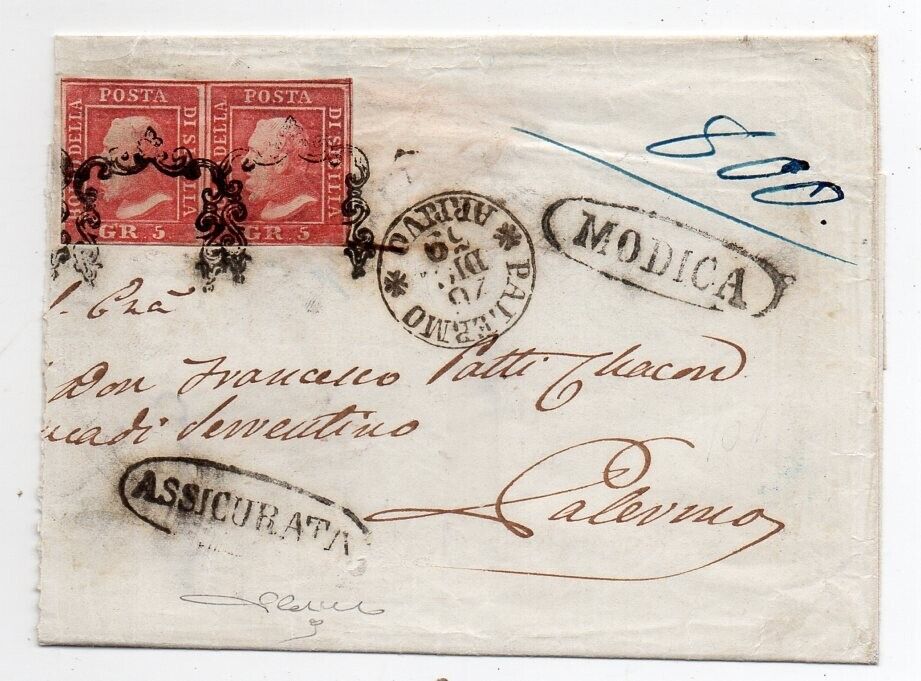 POSTA
DI SICILIA
BOLLO DELLA
GR. 5
POSTA
DI SICILIA
BOLLO DELLA
GR. 5
800.
MODICA
* PALERMO *
ARRIVO
20
DIC
59
Don Francesco Patti Chacon
di Serventino
Palermo
ASSICURATA